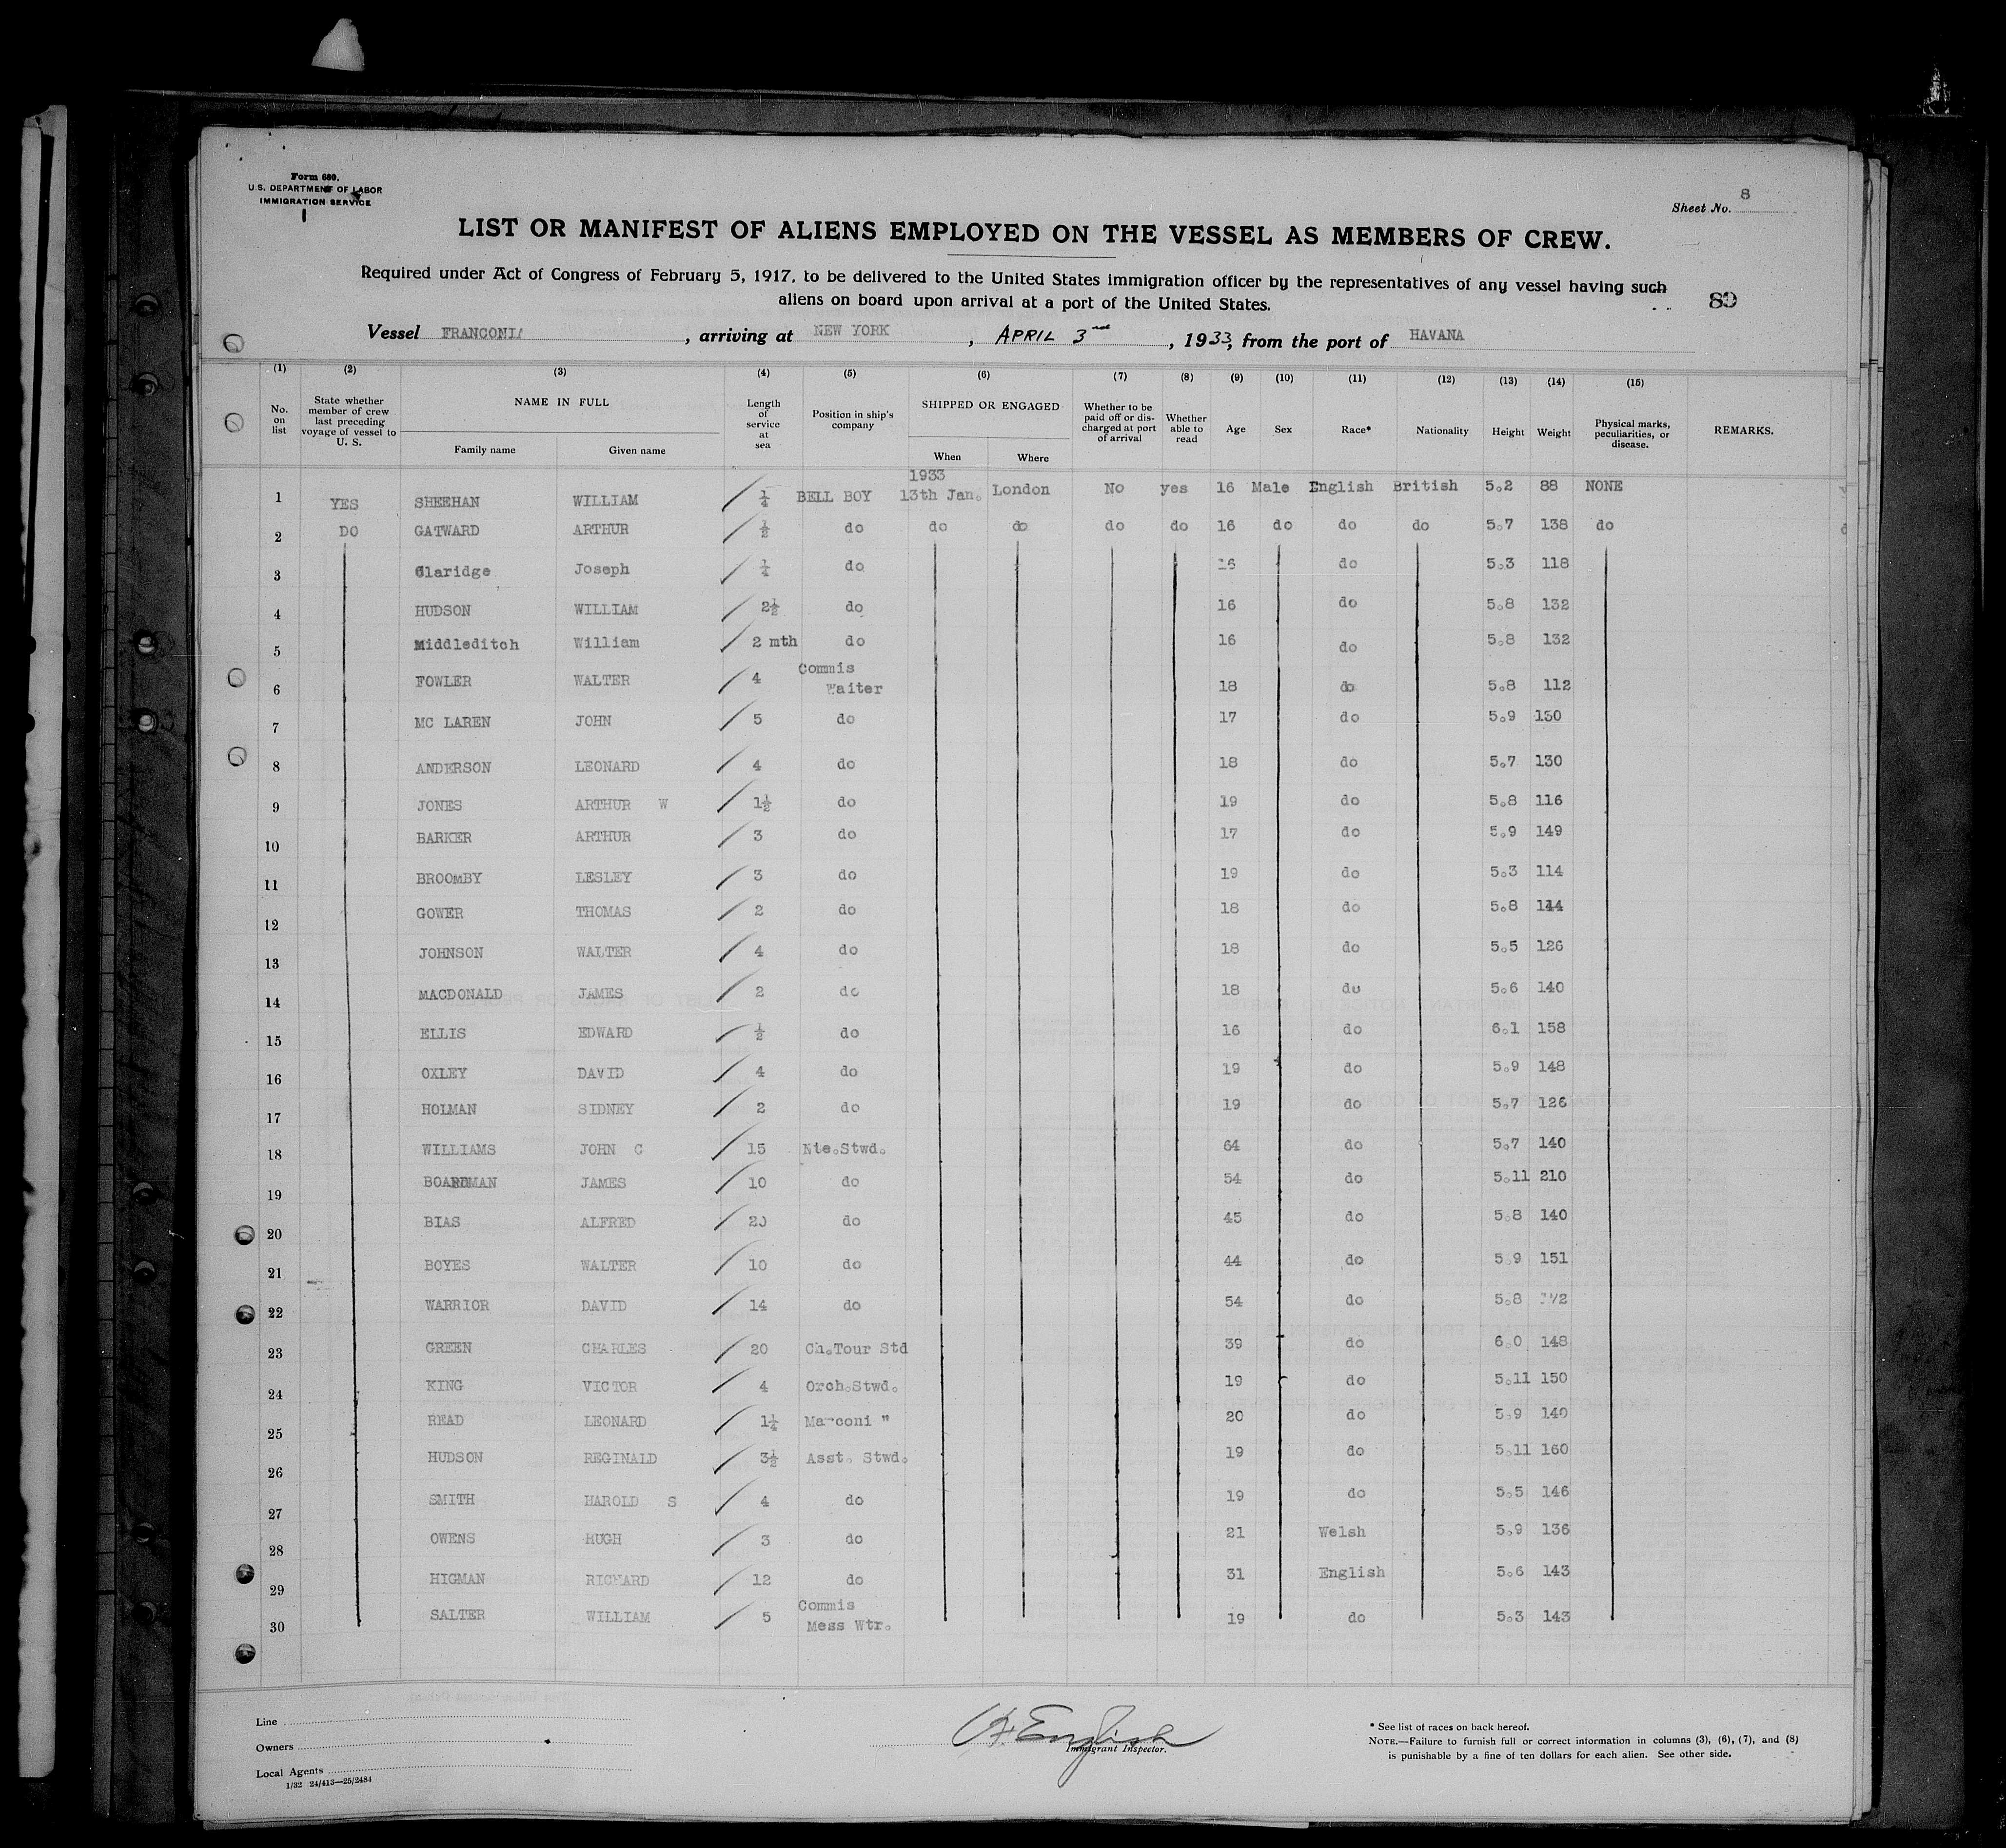 Form 680.
U.S. DEPARTMENT OF LABOR
IMMIGRATION SERVICE
Sheet No. 8
LIST OR MANIFEST OF ALIENS EMPLOYED ON THE VESSEL AS MEMBERS OF CREW.
Required under Act of Congress of February 5, 1917, to be delivered to the United States immigration officer by the representatives of any vessel having such
aliens on board upon arrival at a port of the United States.
80
Vessel FRANCONIA, arriving at NEW YORK, APRIL 3rd, 1933, from the port of HAVANA
(1) (2) (3) (4) (5) (6) (7) (8) (9) (10) (11) (12) (13) (14) (15)
No. on list
State whether member of crew last preceding voyage of vessel to U. S.
NAME IN FULL
Family name Given name
Length of service at sea
Position in ship's company
SHIPPED OR ENGAGED
When Where
Whether to be paid off or discharged at port of arrival
Whether able to read
Age Sex Race* Nationality Height Weight
Physical marks, peculiarities, or disease.
REMARKS.
1933
1 YES SHEEHAN WILLIAM 1/4 BELL BOY 13th Jan. London No yes 16 Male English British 5.2 88 NONE
2 DO GATWARD ARTHUR 1/2 do do do do do 16 do do do 5.7 138 do
3 Claridge Joseph 1/4 do 16 do 5.3 118
4 HUDSON WILLIAM 2½ do 16 do 5.8 132
5 Middleditch William 2 mth do 16 do 5.8 132
6 FOWLER WALTER 4 Commis Waiter 18 do 5.8 112
7 MC LAREN JOHN 5 do 17 do 5.9 130
8 ANDERSON LEONARD 4 do 18 do 5.7 130
9 JONES ARTHUR W 1½ do 19 do 5.8 116
10 BARKER ARTHUR 3 do 17 do 5.9 149
11 BROOMBY LESLEY 3 do 19 do 5.3 114
12 GOWER THOMAS 2 do 18 do 5.8 144
13 JOHNSON WALTER 4 do 18 do 5.5 126
14 MACDONALD JAMES 2 do 18 do 5.6 140
15 ELLIS EDWARD ½ do 16 do 6.1 158
16 OXLEY DAVID 4 do 19 do 5.9 148
17 HOLMAN SIDNEY 2 do 19 do 5.7 126
18 WILLIAMS JOHN C 15 Nte.Stwd. 64 do 5.7 140
19 BOARDMAN JAMES 10 do 54 do 5.11 210
20 BIAS ALFRED 20 do 45 do 5.8 140
21 BOYES WALTER 10 do 44 do 5.9 151
22 WARRIOR DAVID 14 do 54 do 5.8
23 GREEN CHARLES 20 Ch.Tour Std 39 do 6.0 148
24 KING VICTOR 4 Orch.Stwd. 19 do 5.11 150
25 READ LEONARD 1¼ Marconi " 20 do 5.9 140
26 HUDSON REGINALD 3½ Asst. Stwd. 19 do 5.11 160
27 SMITH HAROLD S 4 do 19 do 5.5 146
28 OWENS HUGH 3 do 21 Welsh 5.9 136
29 HIGMAN RICHARD 12 do 31 English 5.6 143
30 SALTER WILLIAM 5 Commis Mess Wtr. 19 do 5.3 143
Line
Owners
Local Agents
1/32 24/413—25/2484
English
Immigrant Inspector.
* See list of races on back hereof.
NOTE.—Failure to furnish full or correct information in columns (3), (6), (7), and (8)
is punishable by a fine of ten dollars for each alien. See other side.